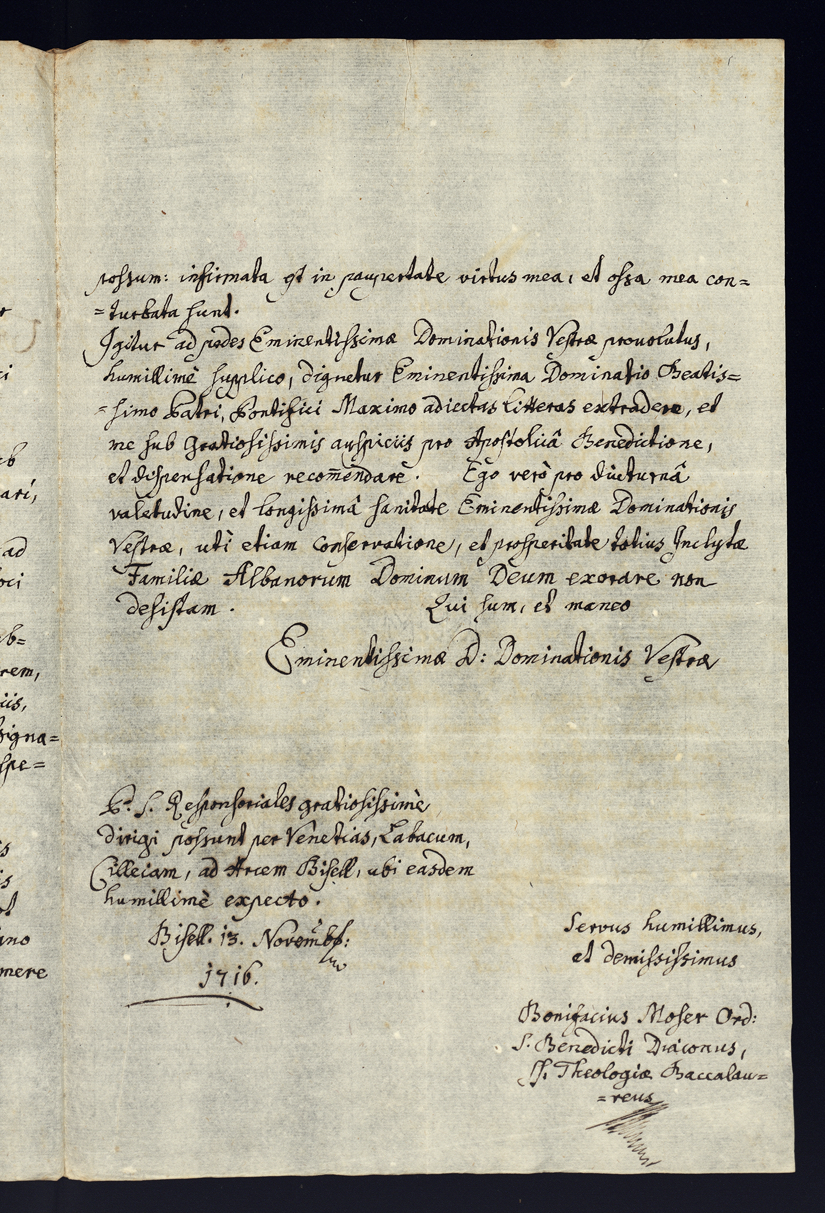 possum: infirmata est in paupertate virtus mea, et ossa mea con=
=turbata sunt.
Igitur ad pedes Eminentissimæ Dominationis Vestræ provolutus,
humillimè supplico, dignetur Eminentissima Dominatio Beatis=
=simo Patri, Pontifici Maximo adiectas litteras extradere, et
me sub gratiosissimis auspiciis pro Apostolicâ Benedictione,
et dispensatione recom̄endare. Ego verò pro diuturnâ
valetudine, et longissimâ sanitate Eminentissimæ Dominationis
Vestræ, uti etiam conservatione, et prosperitate totius Inclytæ
Familiæ Albanorum Dominum Deum exorare non
desistam. Qui sum, et maneo
Eminentissimæ D: Dominationis Vestræ
P. S. Responsoriales gratiosissimè
dirigi possunt per Venetias, Labacum,
Cilleiam, ad Arcem Bisell, ubi easdem
humillimè expecto.
Bisell. 13. Novembr:
1716.
Servus humillimus,
et demississimus
Bonifacius Moser Ord:
S. Benedicti Diaconus,
SS. Theologiæ Baccalau=
=reus